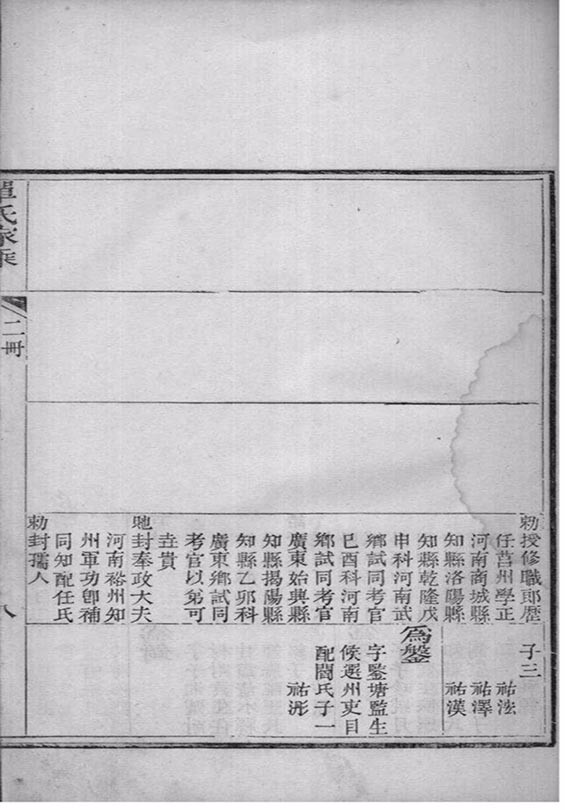 勅授修職郎歷
任莒州學正
河南商城縣
知縣洛陽縣
知縣乾隆戊
申科河南武
鄉試同考官
己酉科河南
鄉試同考官
廣東始興縣
知縣揭陽縣
知縣乙卯科
廣東鄉試同
考官以弟可
垚貴
貤封奉政大夫
河南裕州知
州軍功卽補
同知配任氏
勅封孺人
子三
祐浤
祐澤
祐漢
爲鑒
字鑒塘監生
候選州吏目
配閻氏子一
祐浵
單氏家乘
二冊
八